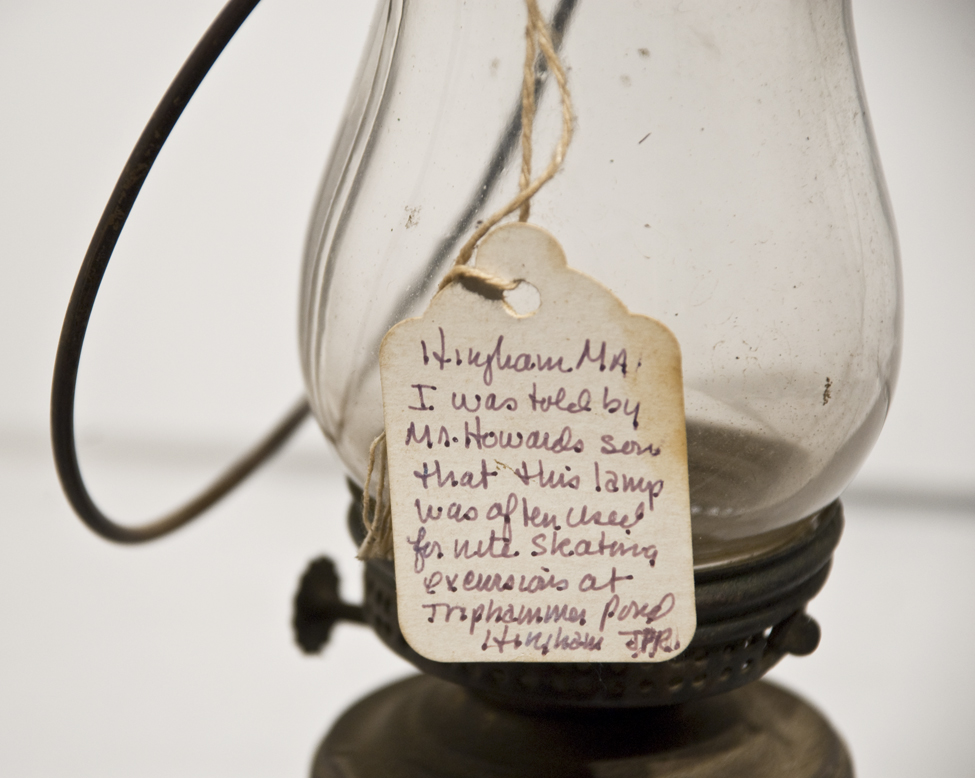 Hingham MA.
I was told by
Mr. Howards son
that this lamp
was often used
for nite skating
excursions at
Triphammer Pond
Hingham JPR.